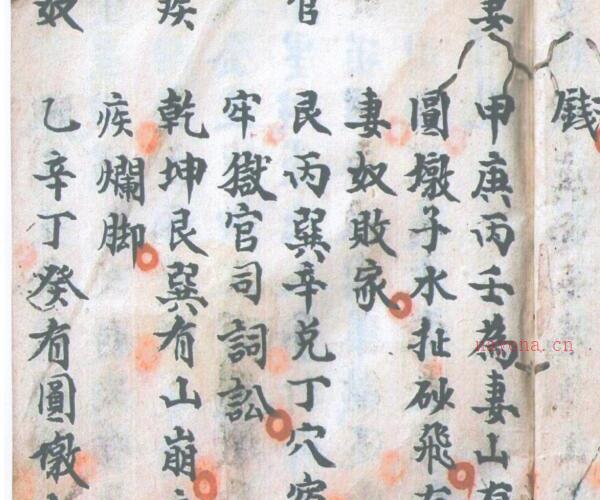 錢
妻
甲庚丙壬為妻山
圓墩子水扯砂飛
妻奴敗家
官
艮丙巽辛兌丁穴
牢獄官司詞訟
疾
乾坤艮巽有山崩
疾爛脚
奴
乙辛丁癸有圓墩
nayona.cn